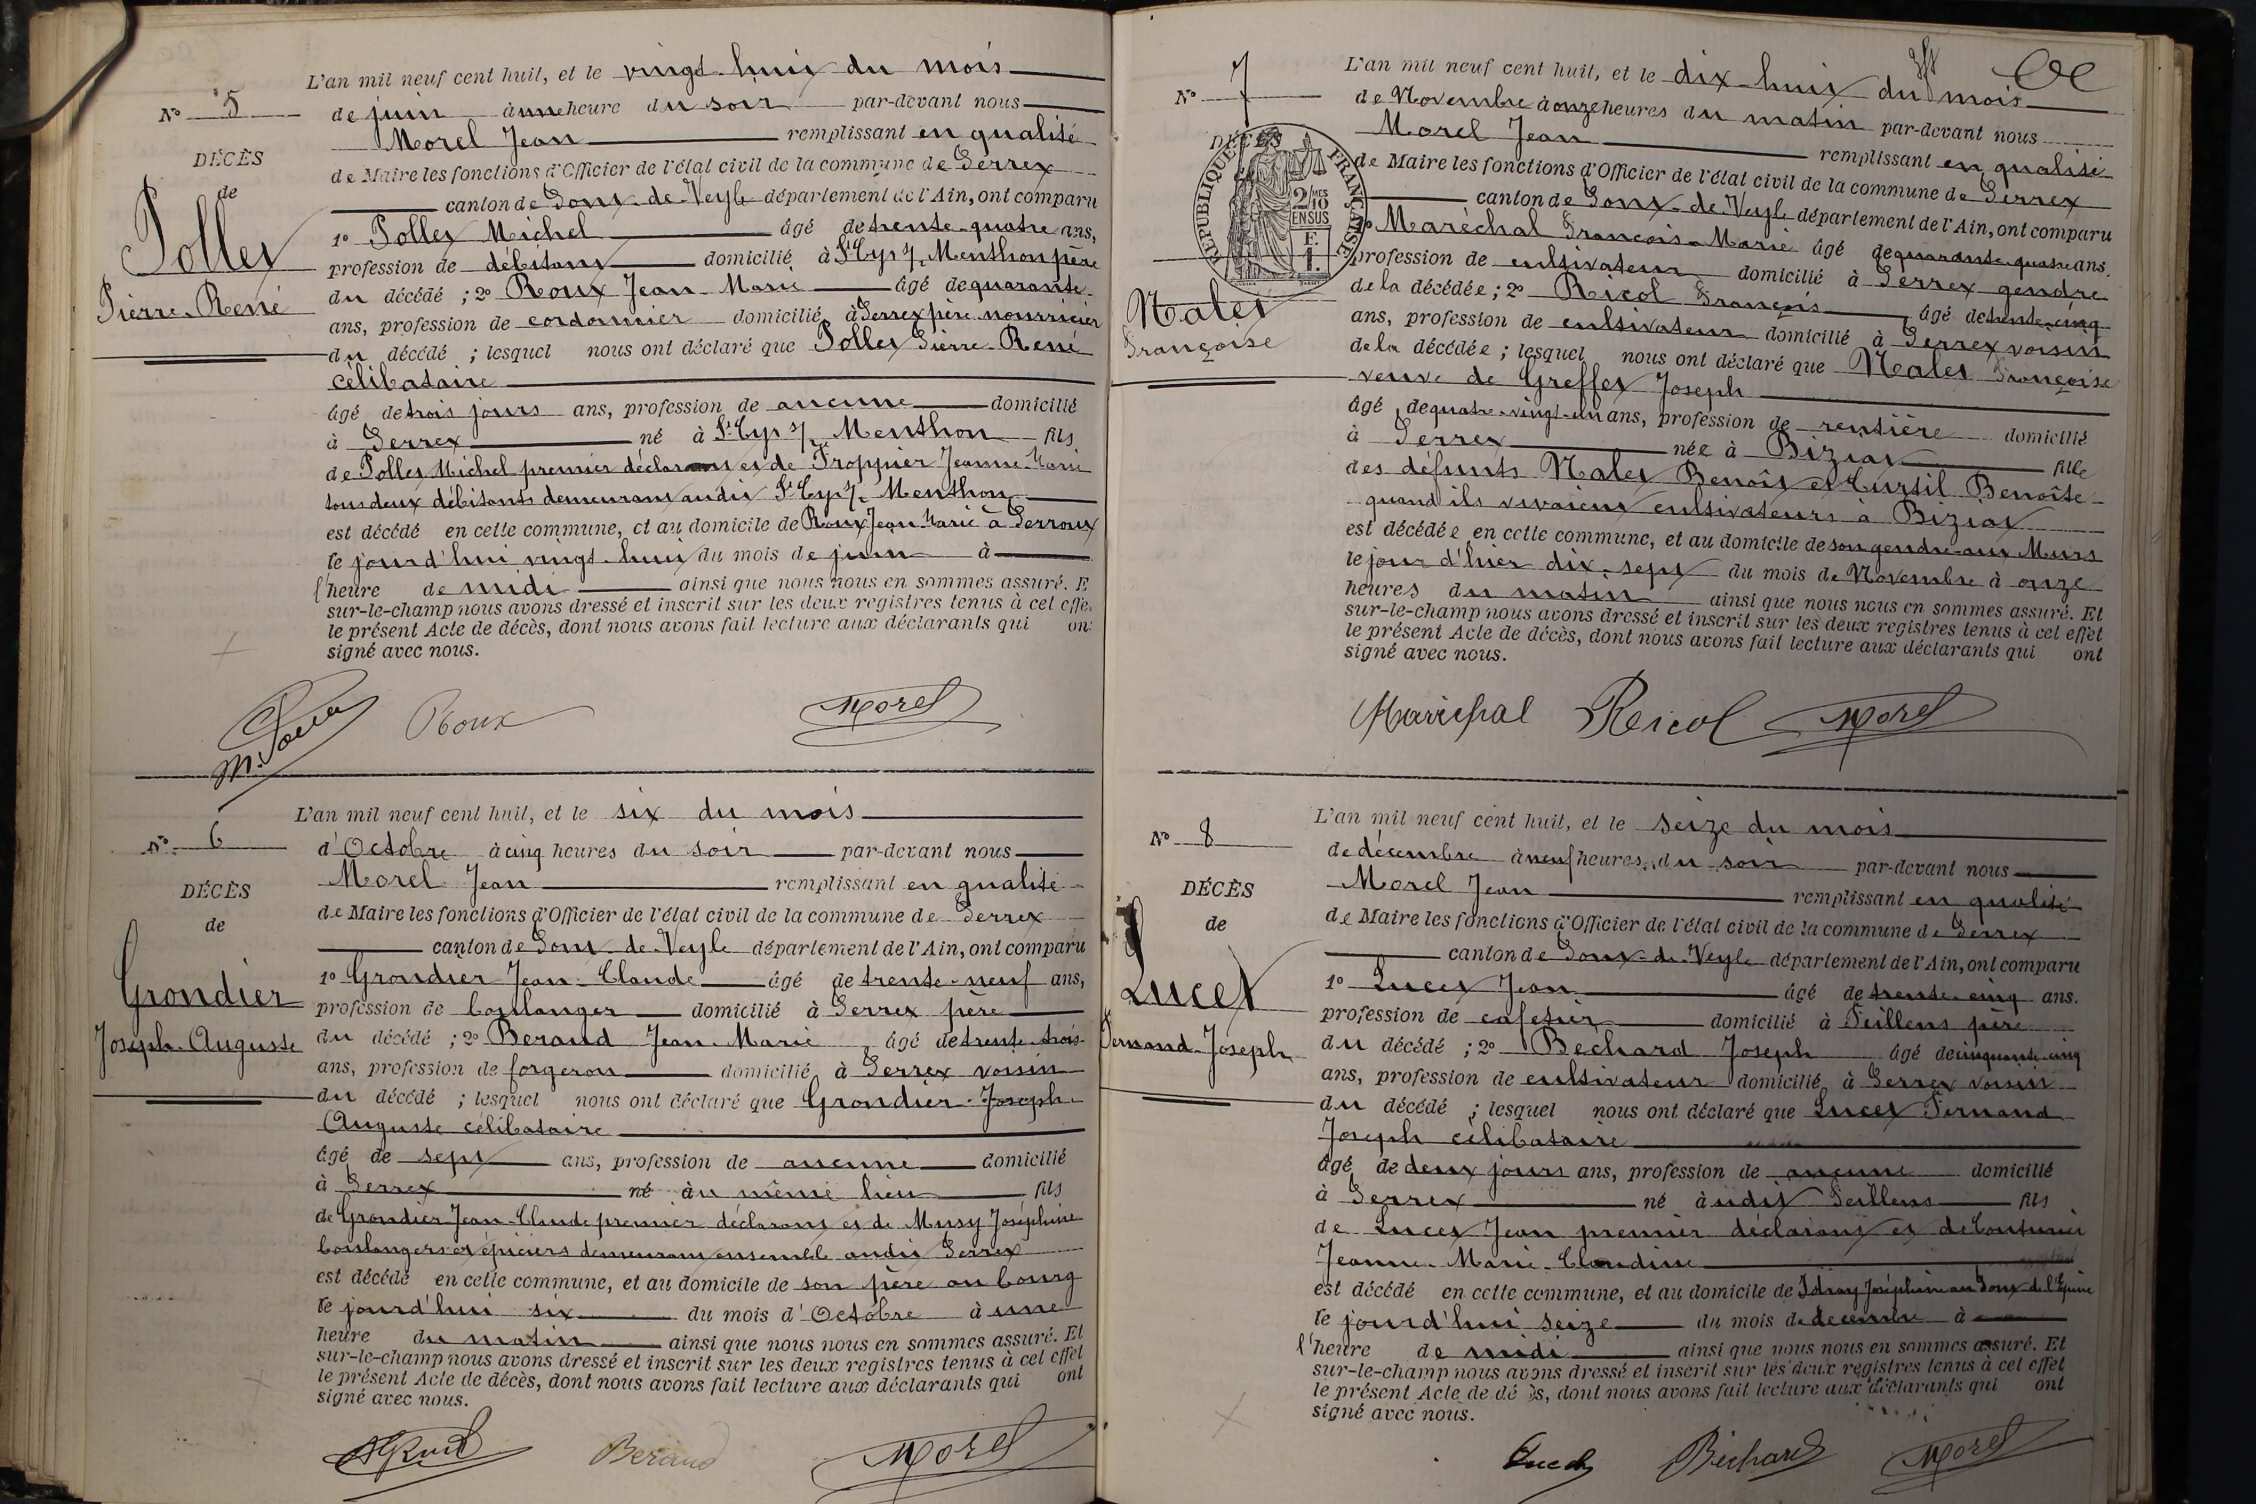 L'an mil neuf cent huit, et le vingt-huit du mois
No 5
de juin à une heure du soir par-devant nous
Morel Jean remplissant en qualité
DÉCÈS
de Maire les fonctions d'Officier de l'état civil de la commune de Perrex
de
canton de Pont-de-Veyle département de l'Ain, ont comparu
Pollet
1o Pollet Michel âgé de trente-quatre ans,
profession de débitant domicilié à St Cyr s/ Menthon père
Pierre-René
du décédé ; 2o Roux Jean-Marie âgé de quarante
ans, profession de cordonnier domicilié à Perrex père nourricier
du décédé ; lesquel nous ont déclaré que Pollet Pierre-René
célibataire
âgé de trois jours ans, profession de aucune domicilié
à Perrex né à St Cyr s/ Menthon fils
de Pollet Michel premier déclarant et de Froppier Jeanne-Marie
tous deux débitants demeurant audit St Cyr s/ Menthon
est décédé en cette commune, et au domicile de Roux Jean-Marie à Perroux
le jourd'hui vingt-huit du mois de juin à
l'heure de midi ainsi que nous nous en sommes assuré. E
sur-le-champ nous avons dressé et inscrit sur les deux registres tenus à cet effe
le présent Acte de décès, dont nous avons fait lecture aux déclarants qui on
signé avec nous.
Roux Morel
L'an mil neuf cent huit, et le six du mois
No 6
d'Octobre à cinq heures du soir par-devant nous
Morel Jean remplissant en qualité
DÉCÈS
de Maire les fonctions d'Officier de l'état civil de la commune de Perrex
de
canton de Pont-de-Veyle département de l'Ain, ont comparu
Grondier
1o Grondier Jean-Claude âgé de trente-neuf ans,
profession de boulanger domicilié à Perrex père
Joseph-Auguste
du décédé ; 2o Beraud Jean-Marie âgé de trente-trois
ans, profession de forgeron domicilié à Perrex voisin
du décédé ; lesquel nous ont déclaré que Grondier Joseph
Auguste célibataire
âgé de sept ans, profession de aucune domicilié
à Perrex né au même lieu fils
de Grondier Jean-Claude premier déclarant et de Musy Joséphine
boulangers et épiciers demeurant ensemble audit Perrex
est décédé en cette commune, et au domicile de son père au bourg
le jourd'hui six du mois d'Octobre à une
heure du matin ainsi que nous nous en sommes assuré. Et
sur-le-champ nous avons dressé et inscrit sur les deux registres tenus à cet effet
le présent Acte de décès, dont nous avons fait lecture aux déclarants qui ont
signé avec nous.
Beraud Morel
L'an mil neuf cent huit, et le dix-huit du mois
No 7
de Novembre à onze heures du matin par-devant nous
Morel Jean remplissant en qualité
DÉCÈS
RÉPUBLIQUE FRANÇAISE
2/10 MES
EN SUS
de Maire les fonctions d'Officier de l'état civil de la commune de Perrex
canton de Pont-de-Veyle département de l'Ain, ont comparu
Maréchal François-Marie âgé de quarante-quatre ans.
profession de cultivateur domicilié à Perrex gendre
Nalet
Françoise
de la décédée ; 2o Ricol François âgé de trente-cinq
ans, profession de cultivateur domicilié à Perrex voisin
de la décédée ; lesquel nous ont déclaré que Nalet Françoise
veuve de Greffet Joseph
âgé de quatre-vingt-un ans, profession de rentière domicilié
à Perrex née à Biziat fille
des défunts Nalet Benoît et Curtil Benoîte
quand ils vivaient cultivateurs à Biziat
est décédée en cette commune, et au domicile de son gendre aux Murs
le jour d'hier dix-sept du mois de Novembre à onze
heures du matin ainsi que nous nous en sommes assuré. Et
sur-le-champ nous avons dressé et inscrit sur les deux registres tenus à cet effet
le présent Acte de décès, dont nous avons fait lecture aux déclarants qui ont
signé avec nous.
Maréchal Ricol Morel
L'an mil neuf cent huit, et le seize du mois
No 8
de décembre à neuf heures du soir par-devant nous
Morel Jean remplissant en qualité
DÉCÈS
de Maire les fonctions d'Officier de l'état civil de la commune de Perrex
de
canton de Pont-de-Veyle département de l'Ain, ont comparu
Lucet
1o Lucet Jean âgé de trente-cinq ans.
profession de cafetier domicilié à Feillens père
Fernand-Joseph
du décédé ; 2o Bechard Joseph âgé de cinquante-cinq
ans, profession de cultivateur domicilié à Perrex voisin
du décédé ; lesquel nous ont déclaré que Lucet Fernand
Joseph célibataire
âgé de deux jours ans, profession de aucune domicilié
à Perrex né audit Feillens fils
de Lucet Jean premier déclarant et de Couturier
Jeanne-Marie-Claudine
est décédé en cette commune, et au domicile de Joséphine au Pont-de-l'Epine
le jourd'hui seize du mois de decembre à
l'heure de midi ainsi que nous nous en sommes assuré. Et
sur-le-champ nous avons dressé et inscrit sur les deux registres tenus à cet effet
le présent Acte de décès, dont nous avons fait lecture aux déclarants qui ont
signé avec nous.
Lucet Béchard Morel